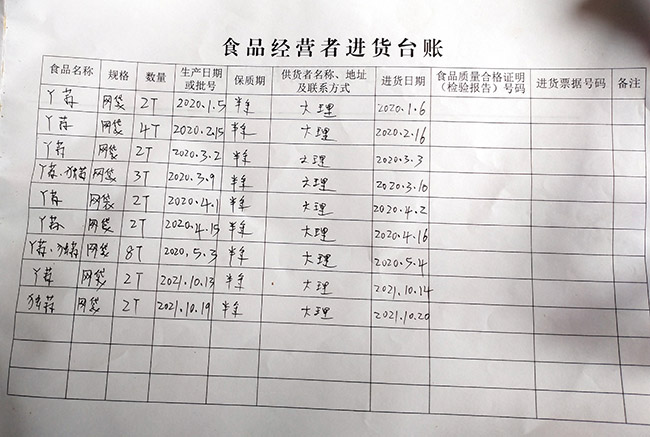 食品经营者进货台账
食品名称 规格 数量 生产日期或批号 保质期 供货者名称、地址及联系方式 进货日期 食品质量合格证明(检验报告)号码 进货票据号码 备注
丫蒜 网袋 2T 2020.1.5 半年 大理 2020.1.6
丫蒜 网袋 4T 2020.2.15 半年 大理 2020.2.16
丫蒜 网袋 2T 2020.3.2 半年 大理 2020.3.3
丫蒜、独蒜 网袋 3T 2020.3.9 半年 大理 2020.3.10
丫蒜 网袋 2T 2020.4.1 半年 大理 2020.4.2
丫蒜 网袋 2T 2020.4.15 半年 大理 2020.4.16
丫蒜、独蒜 网袋 8T 2020.5.3 半年 大理 2020.5.4
丫蒜 网袋 2T 2021.10.13 半年 大理 2021.10.14
独蒜 网袋 2T 2021.10.19 半年 大理 2021.10.20